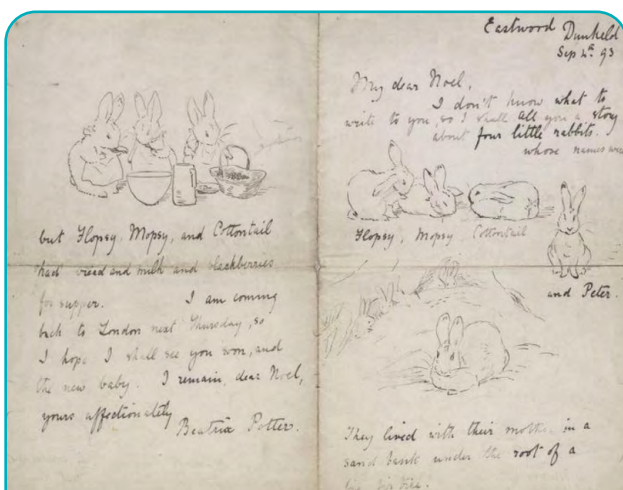 but Flopsy, Mopsy, and Cottontail
had bread and milk and blackberries
for supper. I am coming
back to London next Thursday, so
I hope I shall see you soon, and
the new baby. I remain, dear Noel,
yours affectionately
Beatrix Potter.
Eastwood Dunkeld
Sep 4th 93
My dear Noel,
I don't know what to
write to you, so I shall tell you a story
about four little rabbits.
whose names were
Flopsy, Mopsy Cottontail
and Peter.
They lived with their mother in a
sand bank under the root of a
big fir tree.